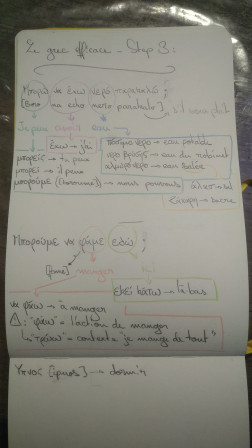 Le grec efficace - Step 3:
Μπορώ να έχω νερό παρακαλώ;
(Boro na echo nero parakalo)
Je peux avoir eau s'il vous plait
έχω → j'ai
πόσιμο νερό → eau potable
νερό βρύσης → eau du robinet
αλμυρό νερό → eau salée
μπορείς → tu peux
μπορεί → il peut
μπορούμε (boroume) → nous pouvons
(αλάτι → sel
ζάχαρη → sucre
Μπορούμε να φάμε εδώ;
[fame] manger ici
εκεί κάτω → là bas
να φάω → à manger
⚠: "τρώω" = l'action de manger
↳ "τρώω" = contexte "je mange de tout"
Υπνος [ipnos] → dormir